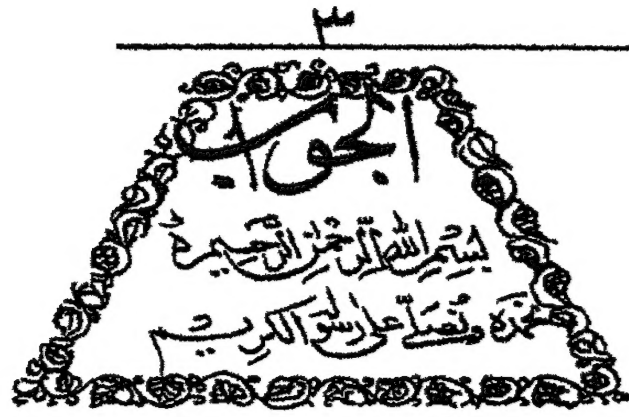 ۳
الجواب
بسم الله الرحمن الرحيم
نحمده ونصلي على رسوله الكريم